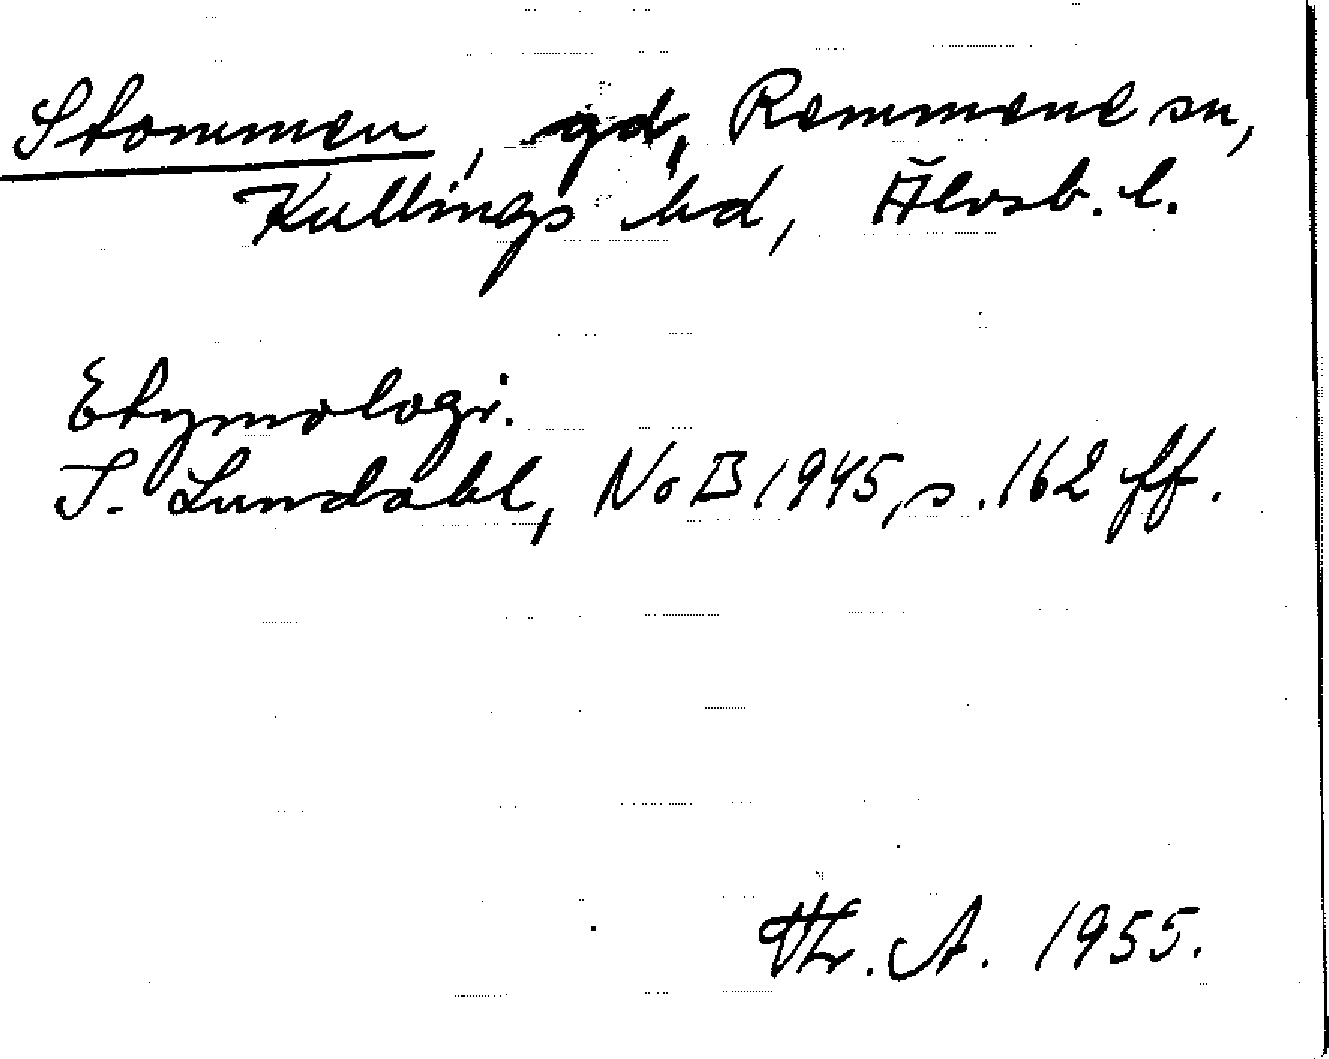 Stommen, gd, Remmene sn,
Kullings hd, Älvsb. l.
Etymologi.
I. Lundahl, NoB 1945, s. 162 ff.
Thr. A. 1955.